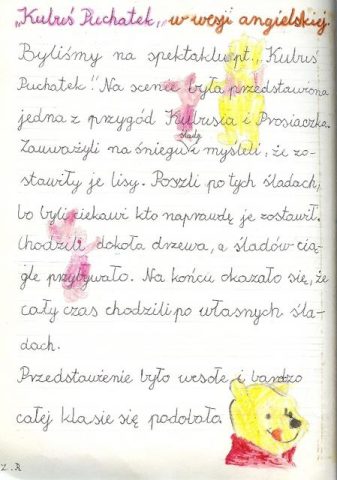 "Kubuś Puchatek," w wersji angielskiej.
Byliśmy na spektaklu pt. "Kubuś
Puchatek". Na scenie była przedstawiona
jedna z przygód Kubusia i Prosiaczka.
ślady
Zauważyli na śniegu i myśleli, że zo-
stawiły je lisy. Poszli po tych śladach,
bo byli ciekawi kto naprawdę je zostawił.
Chodzili dokoła drzewa, a śladów cią-
gle przybywało. Na końcu okazało się, że
cały czas chodzili po własnych śla-
dach.
Przedstawienie było wesołe i bardzo
całej klasie się podobało.
Z.R